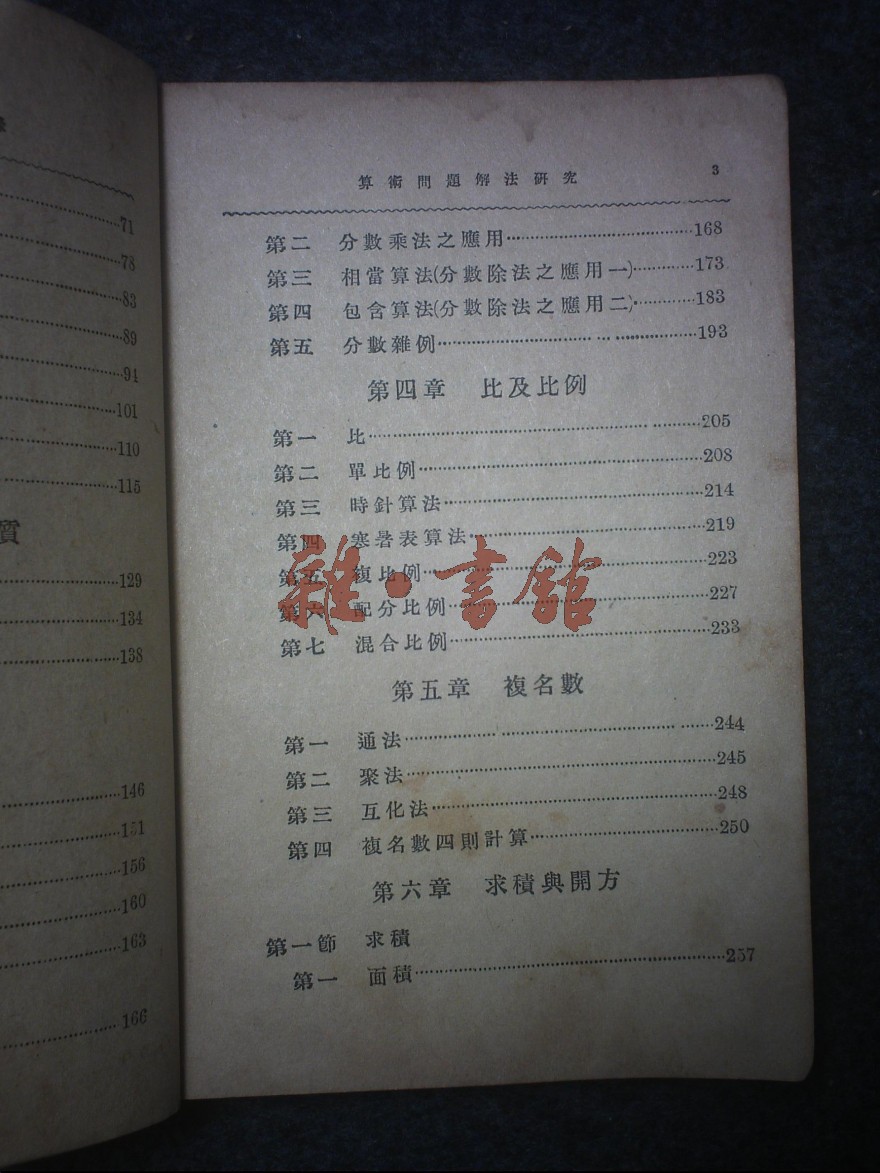 71
78
83
89
94
101
110
115
質
129
134
138
146
151
156
160
163
166
算術問題解法研究 3
第二 分數乘法之應用 168
第三 相當算法(分數除法之應用一) 173
第四 包含算法(分數除法之應用二) 183
第五 分數雜例 193
第四章 比及比例
第一 比 205
第二 單比例 208
第三 時針算法 214
第四 寒暑表算法 219
第五 複比例 223
第六 配分比例 227
第七 混合比例 233
雜·書館
第五章 複名數
第一 通法 244
第二 聚法 245
第三 互化法 248
第四 複名數四則計算 250
第六章 求積與開方
第一節 求積
第一 面積 257